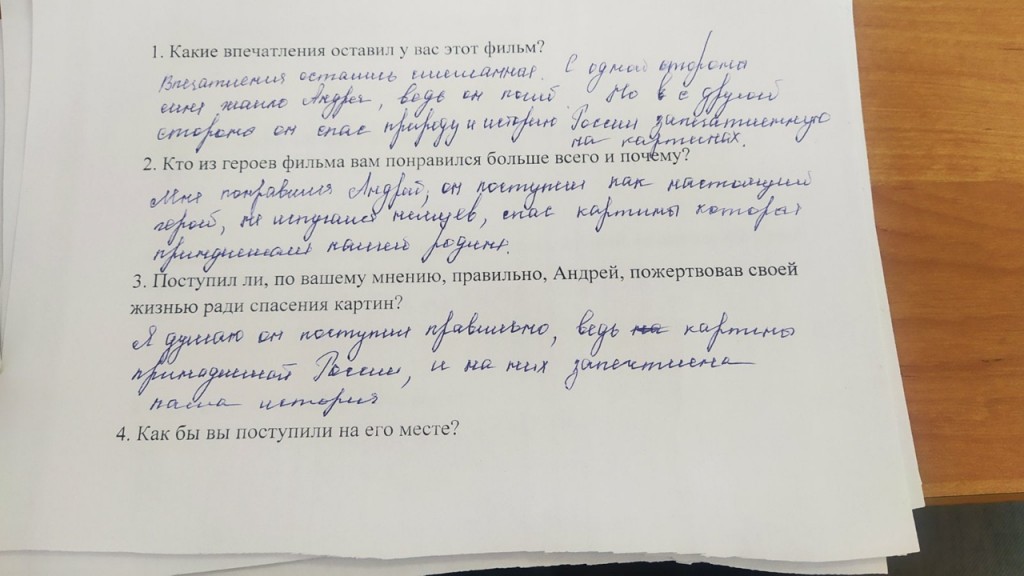 1. Какие впечатления оставил у вас этот фильм?
Впечатления остались смешанная. С одной стороны
мне жалко Андрея, ведь он погиб. Но с другой
стороны он спас природу и историю России запечатленную
на картинах.
2. Кто из героев фильма вам понравился больше всего и почему?
Мне понравился Андрей, он поступил как настоящий
герой, не испугался немцев, спас картины которые
принадлежат нашей родине.
3. Поступил ли, по вашему мнению, правильно, Андрей, пожертвовав своей
жизнью ради спасения картин?
Я думаю он поступил правильно, ведь на картины
России, и на них
наша история
4. Как бы вы поступили на его месте?